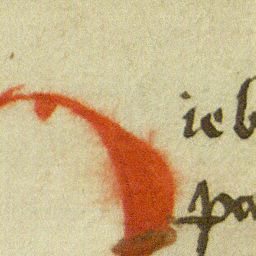 ieb
pa